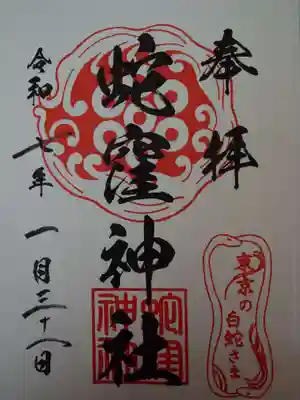 奉拝
蛇窪神社
令和七年一月三十一日
東京の
白蛇さま
蛇窪
神社